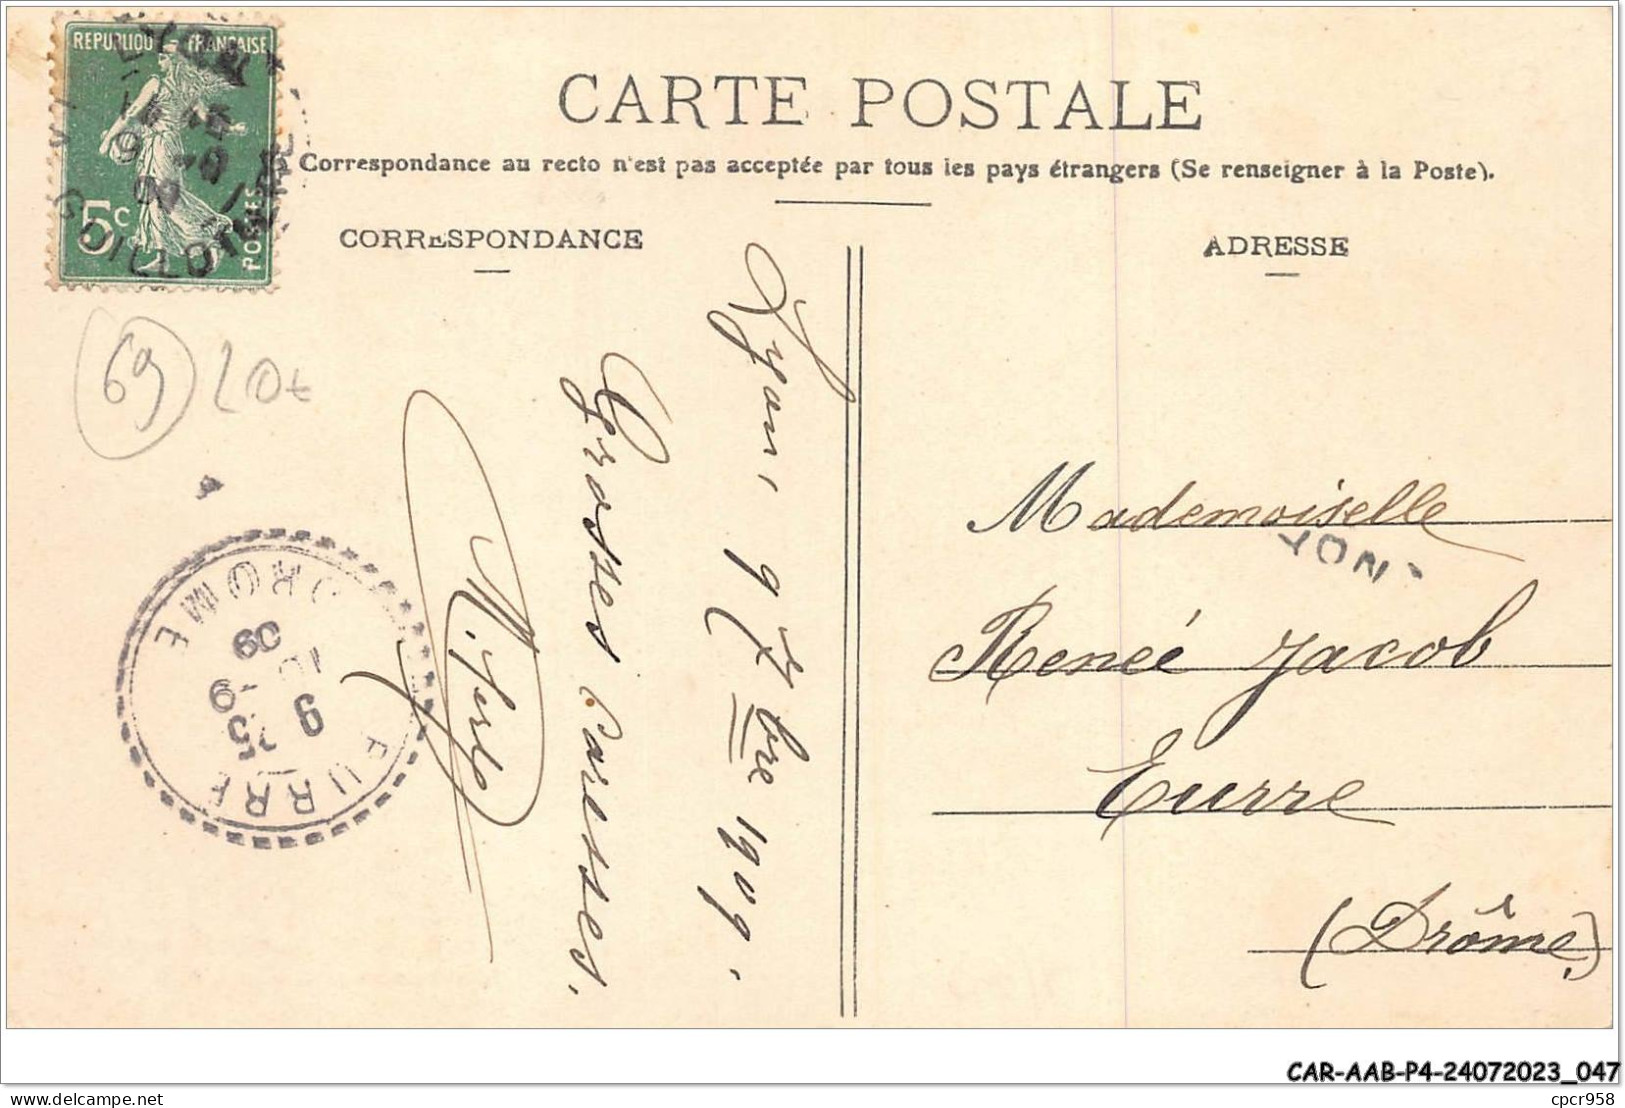 REPUBLIQUE FRANÇAISE
5c
POSTES
CARTE POSTALE
Correspondance au recto n'est pas acceptée par tous les pays étrangers (Se renseigner à la Poste).
CORRESPONDANCE
ADRESSE
69 20€
Lyon, 9 7bre 1909.
Grosses Caresses.
DROME
09
10 -9
9 35
EURRE
Mademoiselle
YON -
Renée Jacob
Eurre
(Drôme)
CAR-AAB-P4-24072023_047
cpcr958